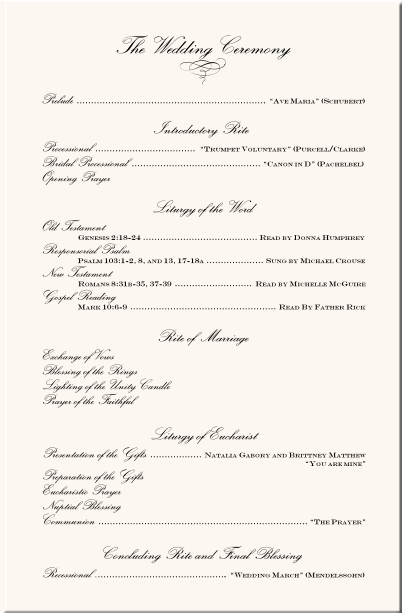 The Wedding Ceremony
Prelude ................................................................ "Ave Maria" (Schubert)
Introductory Rite
Processional .................................. "Trumpet Voluntary" (Purcell/Clarke)
Bridal Processional ............................................ "Canon in D" (Pachelbel)
Opening Prayer
Liturgy of the Word
Old Testament
Genesis 2:18-24 ...................................... Read by Donna Humphrey
Responsorial Psalm
Psalm 103:1-2, 8, and 13, 17-18a ................... Sung by Michael Crouse
New Testament
Romans 8:31b-35, 37-39 ........................... Read by Michelle McGuire
Gospel Reading
Mark 10:6-9 ................................................. Read By Father Rick
Rite of Marriage
Exchange of Vows
Blessing of the Rings
Lighting of the Unity Candle
Prayer of the Faithful
Liturgy of Eucharist
Presentation of the Gifts ................. Natalia Gabory and Brittney Matthew
"You are mine"
Preparation of the Gifts
Eucharistic Prayer
Nuptial Blessing
Communion ...................................................................... "The Prayer"
Concluding Rite and Final Blessing
Recessional ............................................ "Wedding March" (Mendelssohn)